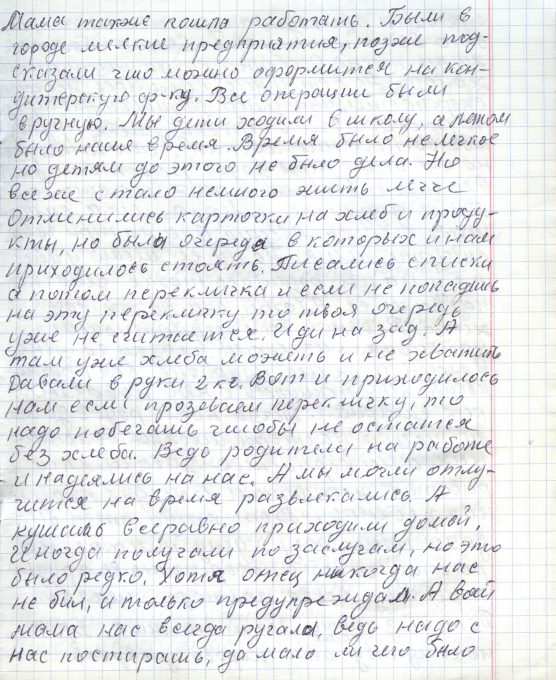 Мама также пошла работать. Были в
городе мелкие предприятия, позже под-
сказали что можно оформится на кон-
дитерскую ф-ку. Все операции были
вручную. Мы дети ходили в школу, а потом
было наше время. Время было не легкое
но детям до этого не было дела. Но
все же стало немного жить легче
Отменились карточки на хлеб и проду-
кты, но была очередь в которых и нам
приходилось стоять. Писались списки
а потом перекличка и если не попадишь
на эту перекличку то твоя очередь
уже не считается. Иди на зад. А
там уже хлеба может и не хватить
Давали в руки 2 кг. Вот и приходилось
нам если прозеваем перекличку, то
надо побегать чтобы не остатся
без хлеба. Ведь родители на работе
и надеялись на нас. А мы могли отлу-
чится на время развлекались. А
кушать всеравно приходили домой.
Иногда получали по заслугам, но это
было редко. Хотя отец никогда нас
не бил, а только предупреждал. А вот
мама нас всегда ругала, ведь надо с
нас постирать, да мало ли чего было